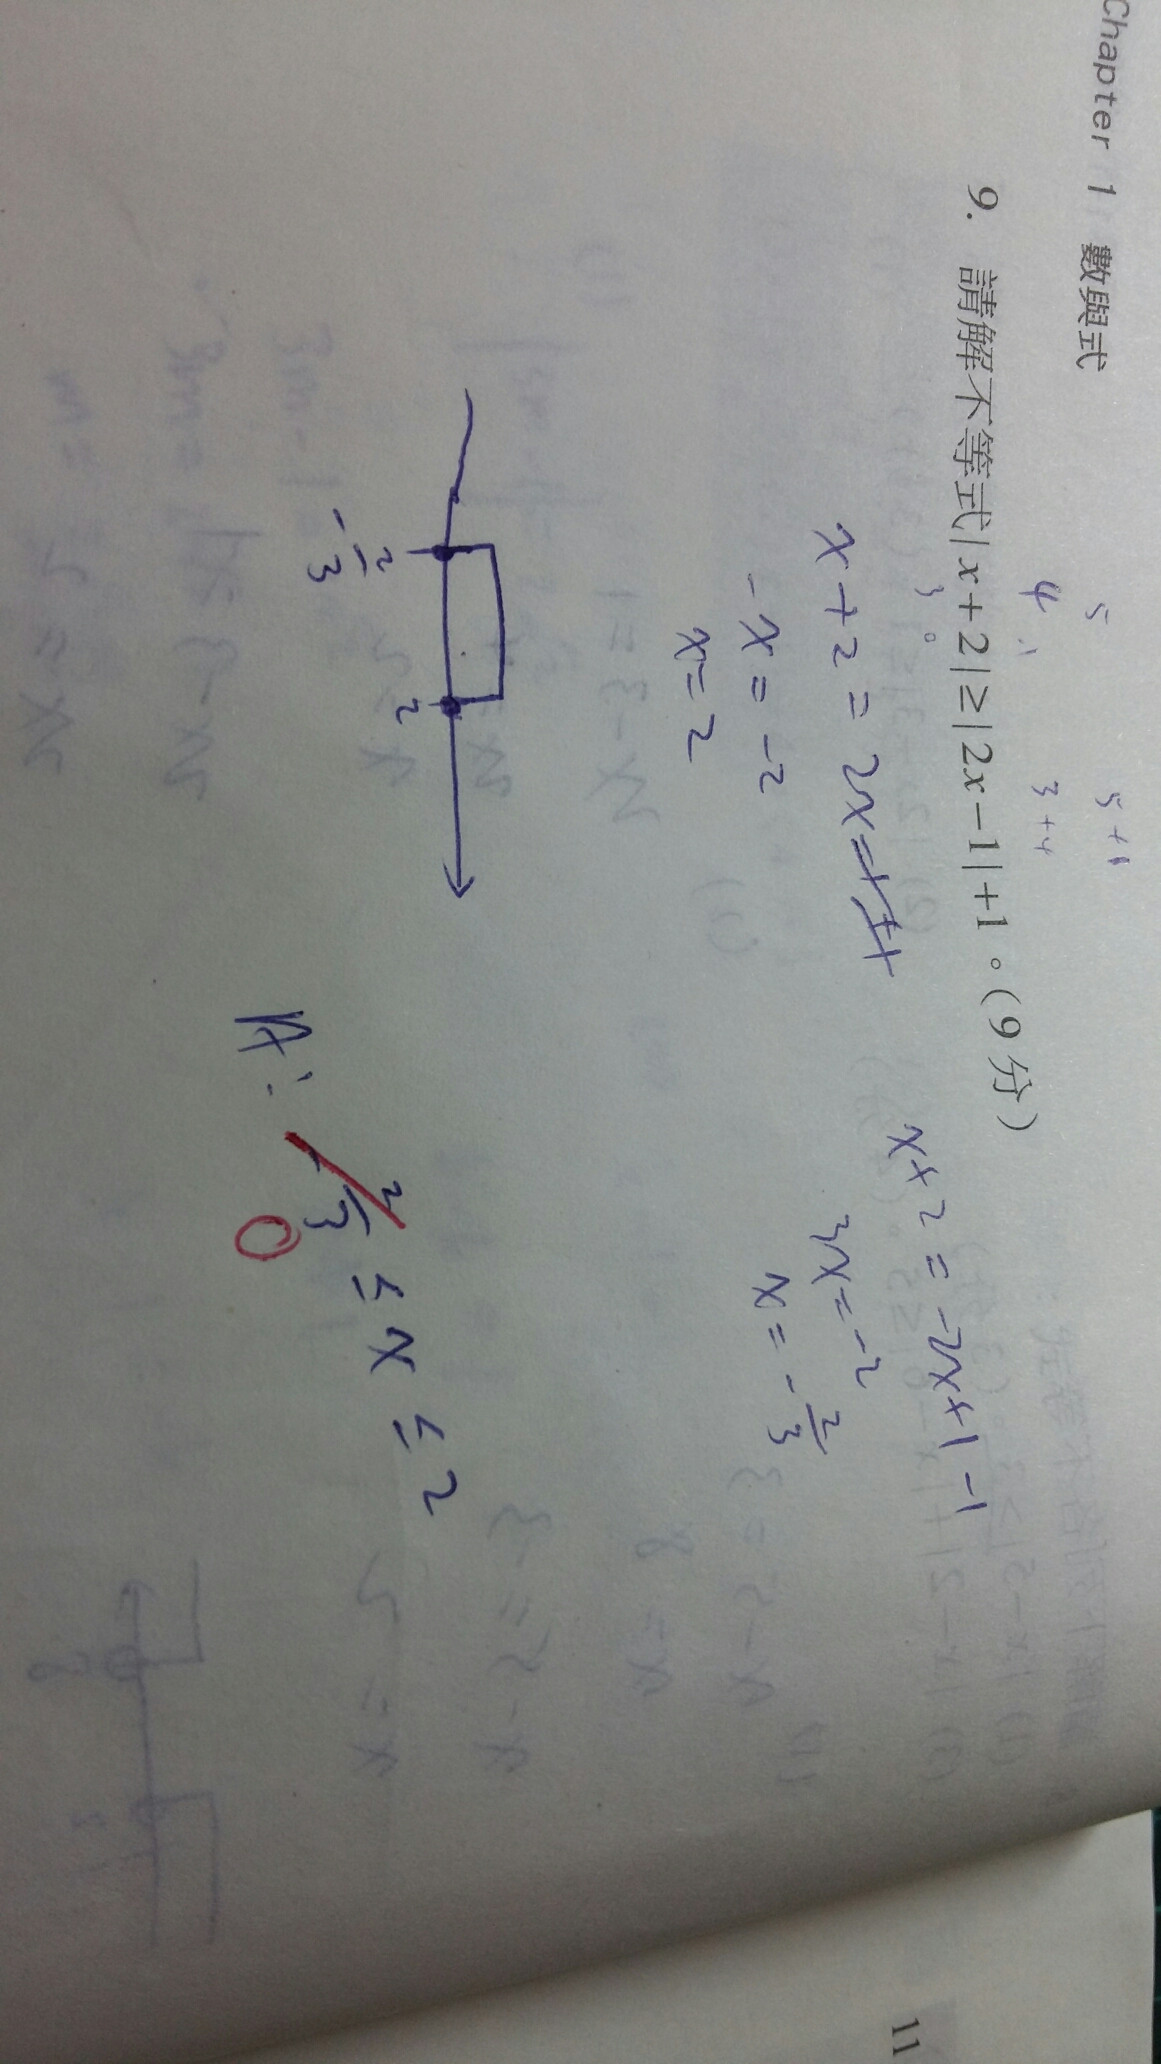 Chapter 1 數與式
5 5+1
4 3+4
9. 請解不等式|x+2|≥|2x-1|+1。(9分)
3 0
x+2=2x-1+1
-x=-2
x=2
x+2=-2x+1-1
3x=-2
x=-2/3
-2/3 2
A: -2/3 ≤ x ≤ 2
0
11